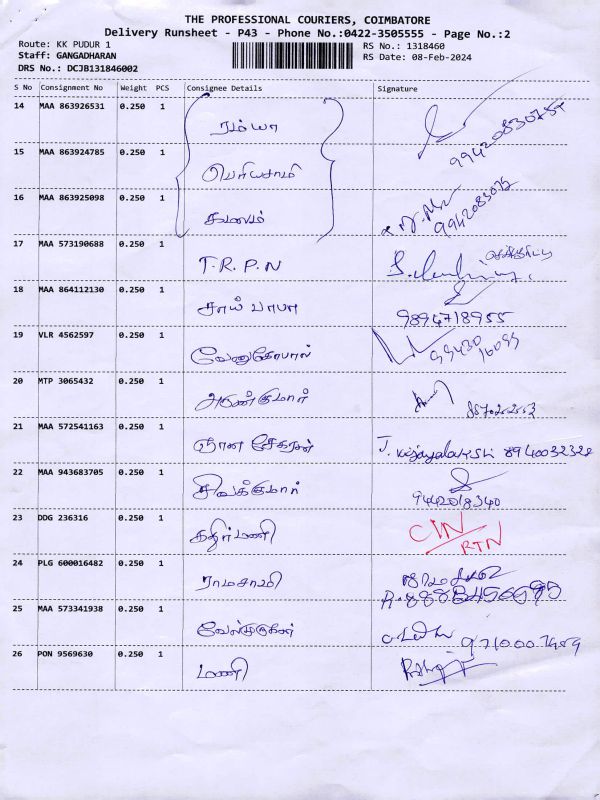 THE PROFESSIONAL COURIERS, COIMBATORE
Delivery Runsheet - P43 - Phone No.:0422-3505555 - Page No.:2
Route: KK PUDUR 1 RS No.: 1318460
Staff: GANGADHARAN RS Date: 08-Feb-2024
DRS No.: DCJB131846002
S No Consignment No Weight PCS Consignee Details Signature
14 MAA 863926531 0.250 1 ரம்யா
15 MAA 863924785 0.250 1 பெரியசாமி
16 MAA 863925098 0.250 1
17 MAA 573190688 0.250 1 T.R.P.N
18 MAA 864112130 0.250 1 சாய் பாபா 9894718955
19 VLR 4562597 0.250 1 வேணுகோபால்
20 MTP 3065432 0.250 1 அருண்குமார்
21 MAA 572541163 0.250 1 ஞான சேகரன் J. Vijayalakshi 8940032322
22 MAA 943683705 0.250 1 சிவக்குமார் 9442018340
23 DDG 236316 0.250 1 கதிர்மணி CIN/RTN
24 PLG 600016482 0.250 1 ராமசாமி
25 MAA 573341938 0.250 1 வேல்முருகன்
26 PON 9569630 0.250 1 மணி